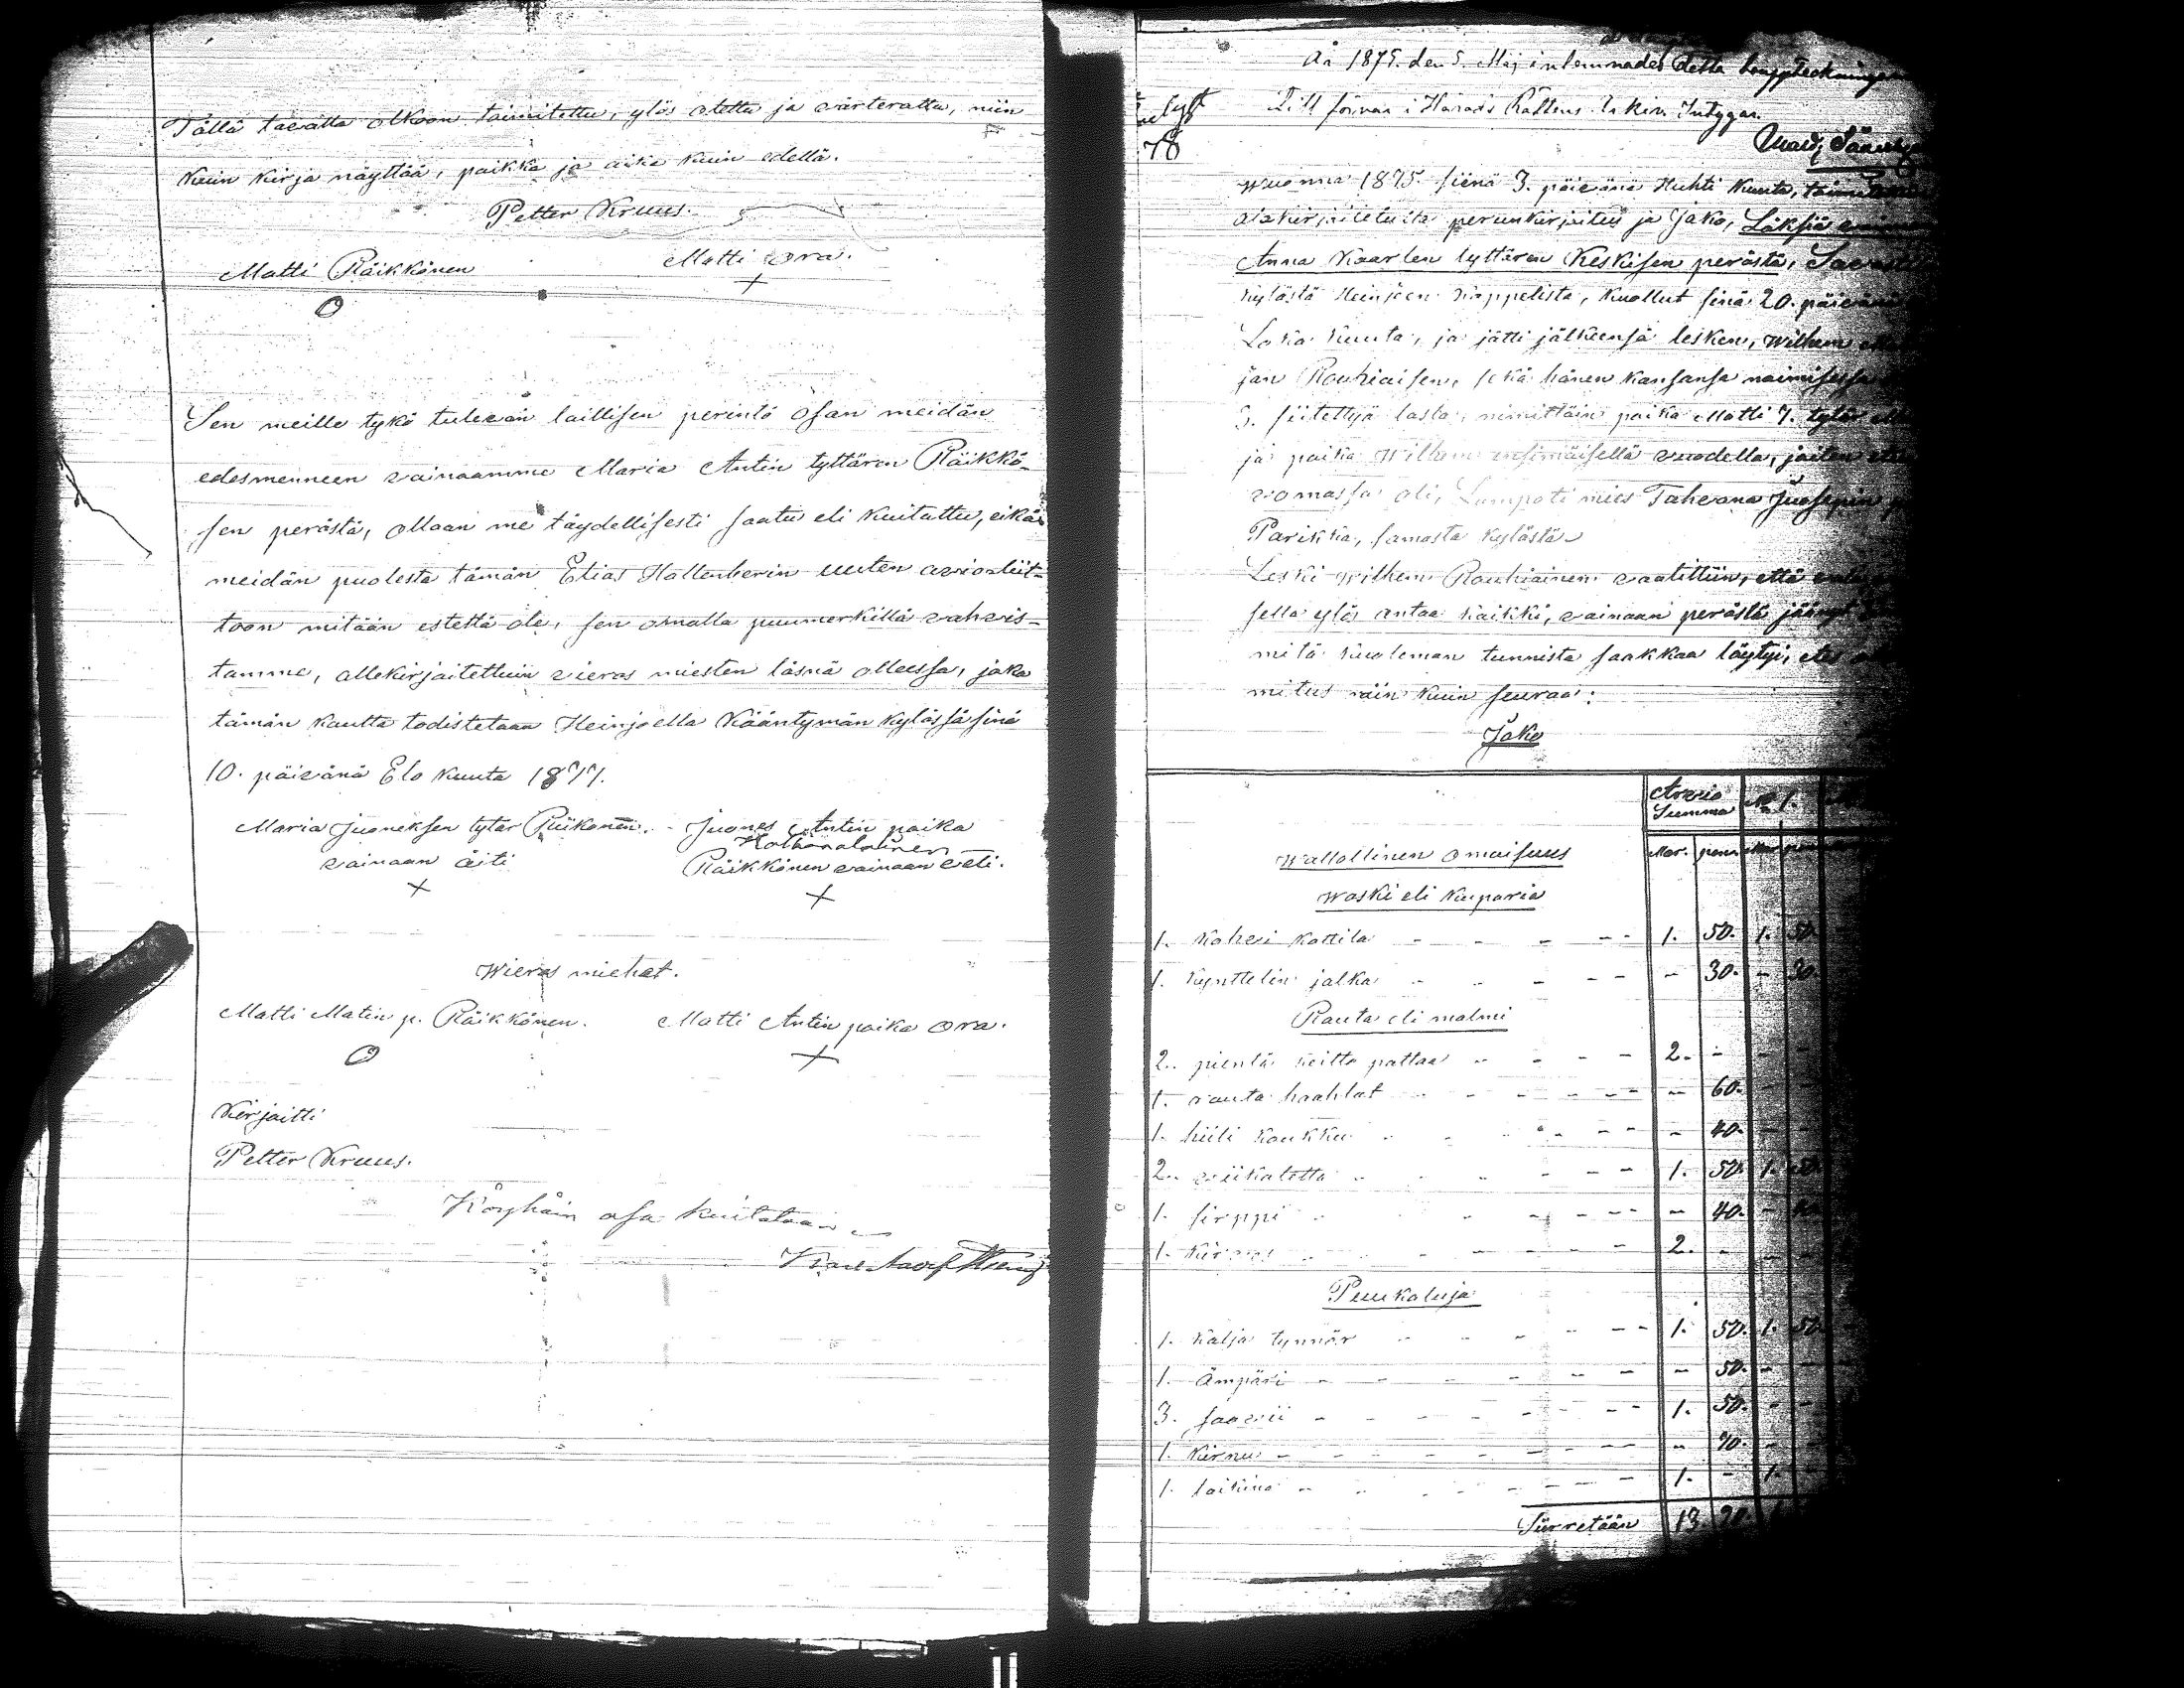 Tällä tavalla olkoon toimitettu, ylös otettu ja värterattu, niin
kuin kirja näyttää, paikka ja aika kuin edellä.
Petter Kruus.
Matti Räikkönen Matti Ora.
O +
Sen meille tykö tulevan laillisen perintö osan meidän
edesmenneen vainaamme Maria Antin tyttären Räikkö-
sen perästä, ollaan me täydellisesti saatu eli kuitattu, eikä
meidän puolesta tämän Elias Hallenberin uuten avioliit-
toon mitään estettä ole, sen omalla puumerkillä vahvis-
tamme, allekirjoitettuin vieras miesten läsnä ollessa, joka
tämän kautta todistetaan Heinjoella Kääntymän kylässä sinä
10. päivänä Elo kuuta 1877.
Maria Juoneksen tytar Piikonen. Juones Antin poika
vainaan äiti Räikkönen vainaan veli.
+ +
Wieras miehet.
Matti Matin p. Räikkönen. Matti Antin poika Ora.
O +
Kirjoitti
Petter Kruus.
Köyhäin osa kuitataan
År 1875 den 5. Maj inlemnades detta
till förvar i Härads Rättens Arkiv. Intygar.
78
Wuonna 1875. siinä 3. päivänä Huhti kuuta,
alakirjoitetuita perunkirjoitus ja Jako,
Anna Kaarlen tyttären Keskisen perästä,
kylästä Heinjoen kappelista, kuollut sinä 20. päivänä
Loka kuuta, ja jätti jälkeensä lesken, Wilhem
jan Rouhiaisen, sekä hänen kanssansa naimisessa
3. siitettyä lasta, nimittäin poika Matti 7. tytär
ja poika Wilhem ensimäisellä vuodella, joiten
vomassa oli, Lampoti mies Tahvana Juosepin
Parikka, samasta kylästä
Leski Wilhem Rouhiainen vaatittiin, että
sella ylös antaa kaikki, vainaan perästä
mitä kuoleman tunnista saakkaa löytyi,
mitus niin kuin seuraa:
Jako
Arvio Summa № 1.
Wallollinen omaisuus Mar. penn
Waski eli kuparia
1. kahvi kattila 1. 50. 1. 50.
1. kynttelin jalka - 30. - 30.
Rauta eli malmi
2. pientä keitto pattaa 2. -
1. rauta haahlat - 60.
1. hiili koukku - 40.
2. viikatetta 1. 50. 1. 50.
1. sirppi - 40.
1. kirves 2. -
Puukaluja
1. kalja tynnör 1. 50. 1. 50.
1. Ämpäri - 50.
3. saavii 1. 50.
1. kirnu - 70.
1. 1. - 1.
Siirretään 13. 90.